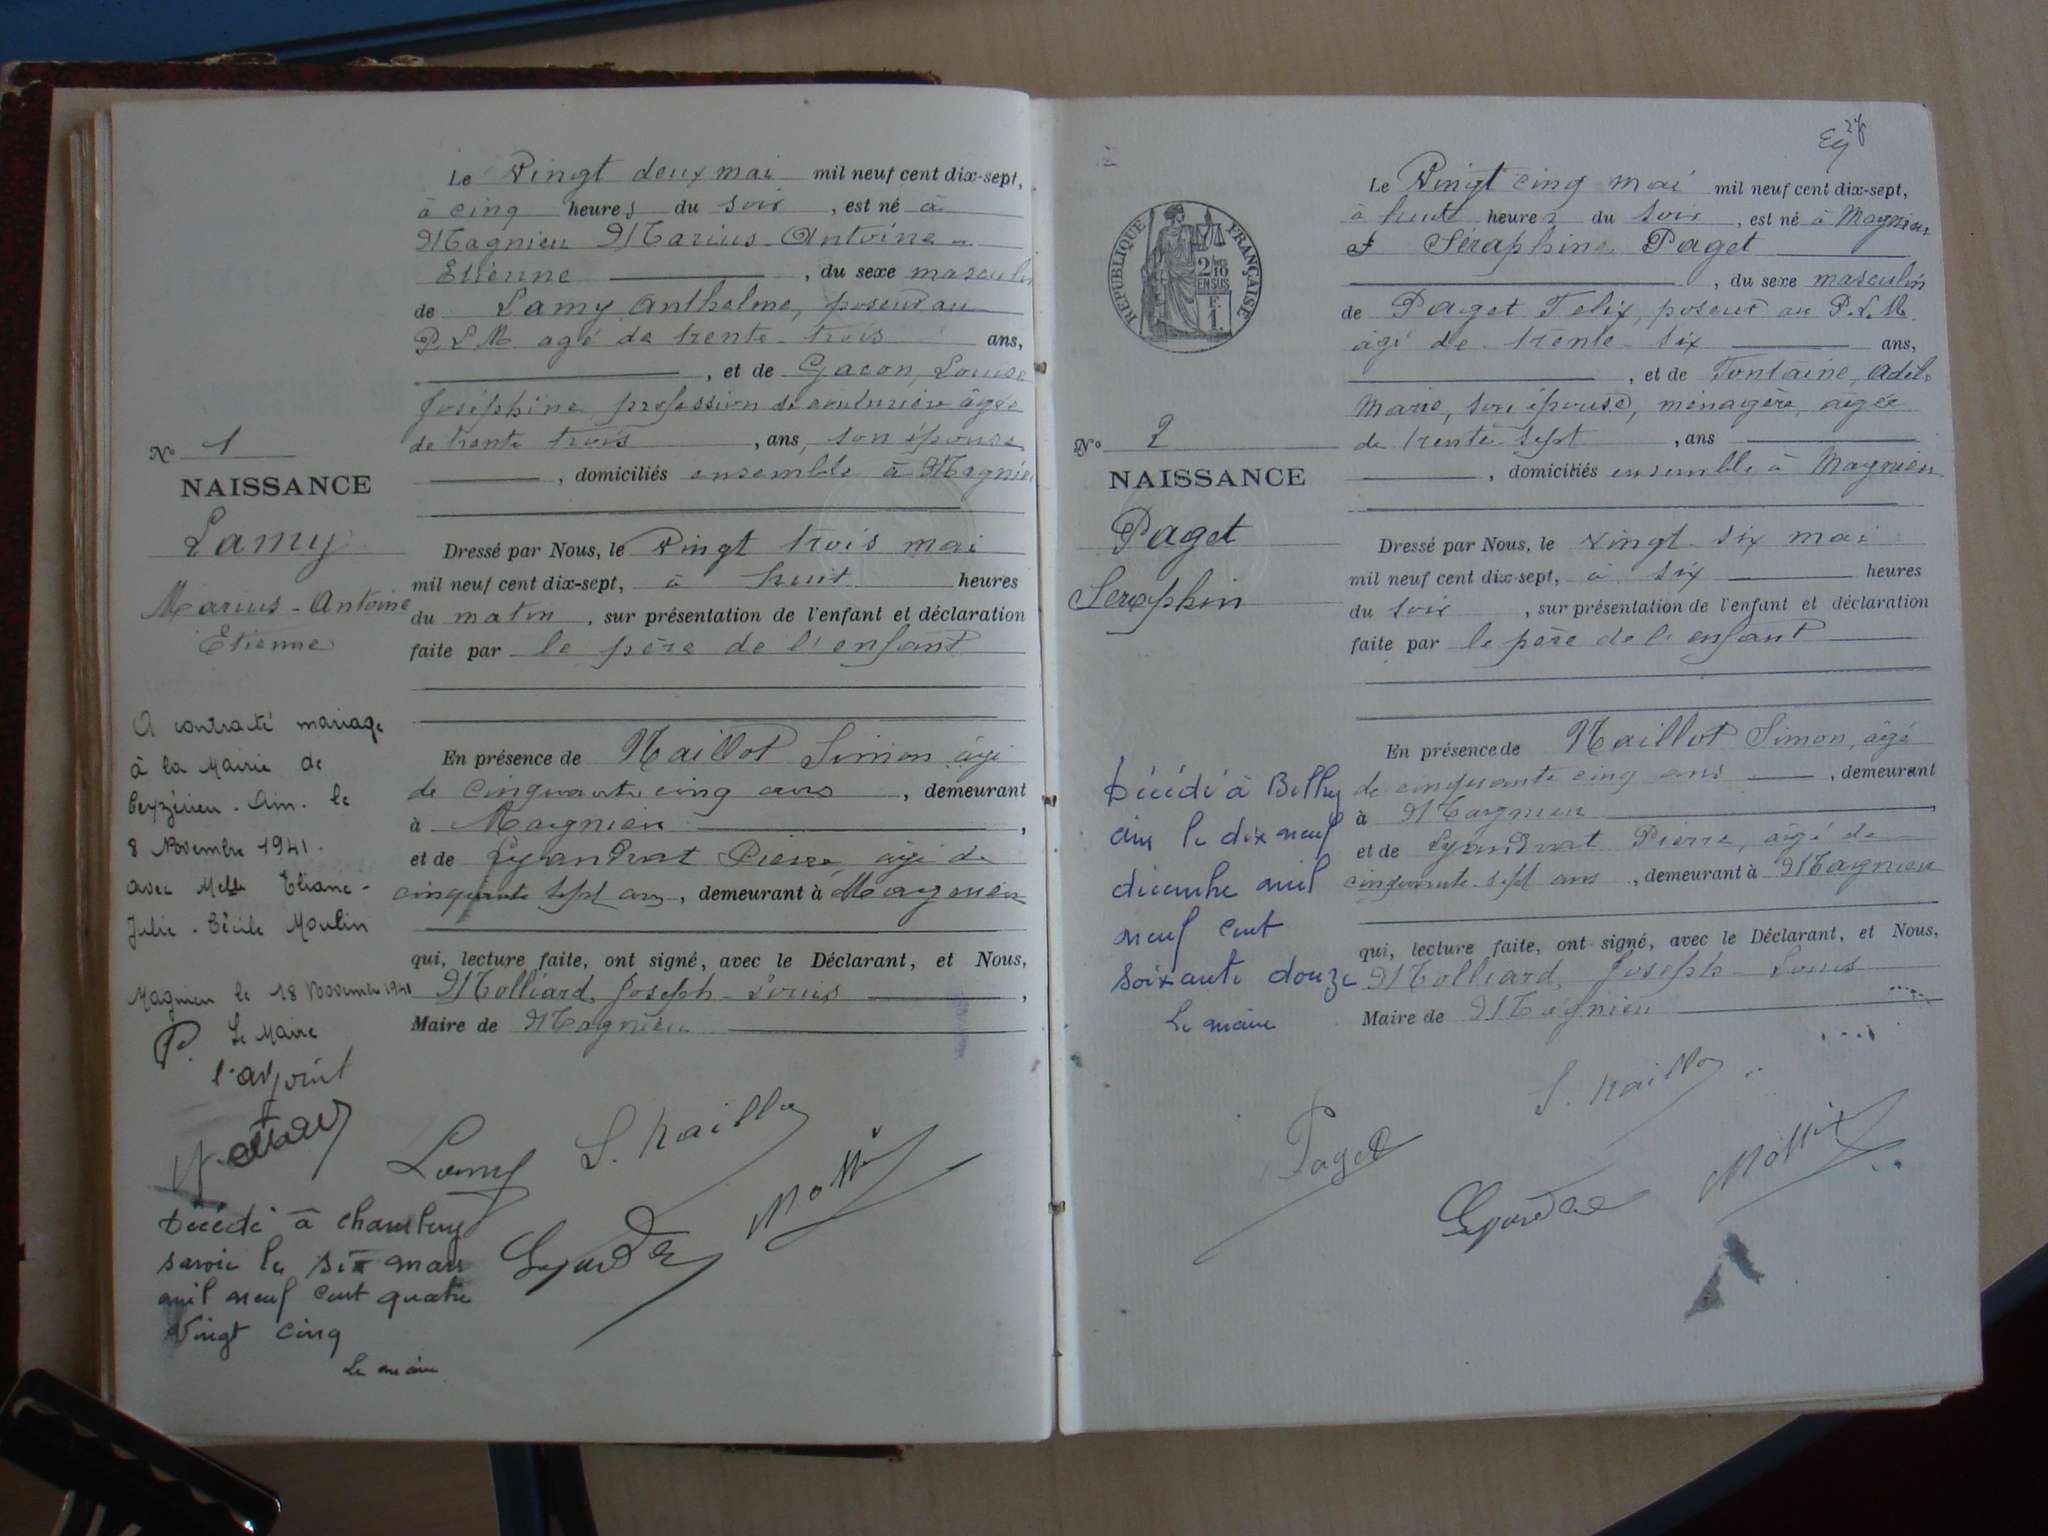 Le Vingt deux mai mil neuf cent dix-sept,
à cinq heures du soir, est né à
Magnieu Marius-Antoine-
Etienne, du sexe masculin
de Lamy Anthelme, poseur au
P.L.M. agé de trente-trois ans,
, et de Gacon, Louise
Joséphine profession de couturière âgée
de trente trois, ans, son épouse
, domiciliés ensemble à Magnieu
Nº 1
NAISSANCE
Lamy
Marius-Antoine
Etienne
Dressé par Nous, le Vingt trois mai
mil neuf cent dix-sept, à huit heures
du matin, sur présentation de l'enfant et déclaration
faite par le père de l'enfant
En présence de Maillot Simon, âgé
de cinquante cinq ans, demeurant
à Magnieu,
et de Pierre, âgé de
cinquante sept ans, demeurant à Magnieu
qui, lecture faite, ont signé, avec le Déclarant, et Nous,
Molliard, Joseph-Louis,
Maire de Magnieu
A contracté mariage
à la Mairie de
Ceyzérieu - Ain. le
8 Novembre 1941.
avec Melle Eliane-
Julie-Cécile Moulin
Magnieu le 18 Novembre 1941
P. Le Maire
l'adjoint
Lamy
Décédé à Chambéry
savoie le six mars
mil neuf cent quatre
vingt cinq
Le maire
Le Vingt cinq mai mil neuf cent dix-sept,
à huit heures du soir, est né à Magnieu
Séraphine Paget
, du sexe masculin
de Paget Felix, poseur au P.L.M.
âgé de trente-six ans,
, et de Fontaine, Adèle
Marie, son épouse, ménagère, âgée
de trente sept, ans
, domiciliés ensemble à Magnieu
RÉPUBLIQUE FRANÇAISE
2/10
EN SUS
F.
1.
Nº 2
NAISSANCE
Paget
Seraphin
Dressé par Nous, le vingt-six mai
mil neuf cent dix-sept, à six heures
du soir, sur présentation de l'enfant et déclaration
faite par le père de l'enfant
En présence de Maillot Simon, âgé
de cinquante cinq ans, demeurant
à Magnieu
et de Pierre, âgé de
cinquante-sept ans, demeurant à Magnieu
qui, lecture faite, ont signé, avec le Déclarant, et Nous,
Molliard, Joseph-Louis
Maire de Magnieu
Décédé à Belley
ain le dix neuf
décembre mil
neuf cent
soixante douze
Le maire
Paget